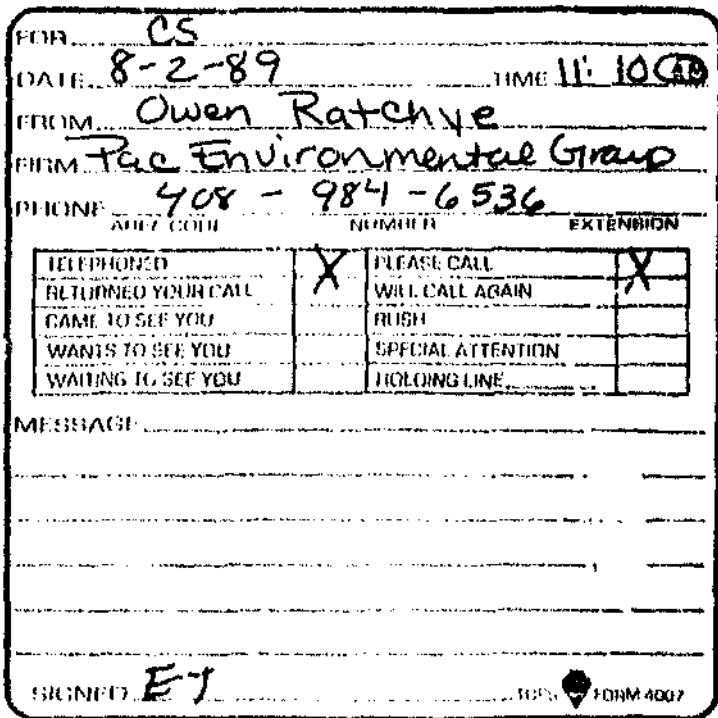 FOR CS
DATE 8-2-89 TIME 11:10
FROM Owen Ratchye
FIRM Pac Environmental Group
PHONE 408 - 984 - 6536
AREA CODE NUMBER EXTENSION
TELEPHONED X PLEASE CALL X
RETURNED YOUR CALL WILL CALL AGAIN
CAME TO SEE YOU RUSH
WANTS TO SEE YOU SPECIAL ATTENTION
WAITING TO SEE YOU HOLDING LINE
MESSAGE
SIGNED
TOPS FORM 4007